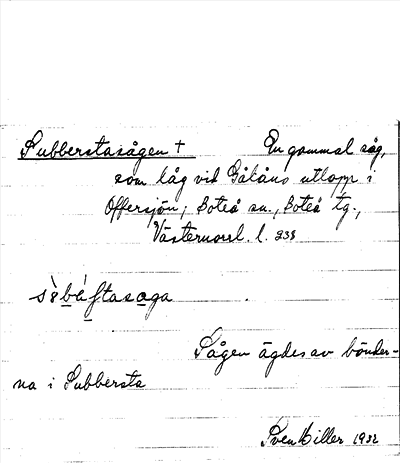 Subberstasågen + En gammal såg,
som låg vid Gålåns utlopp i
Offersjön; Boteå sn., Boteå tg.,
Västernorrl. l. 238
Sågen ägdes av bönder-
na i Subbersta
Sven Hiller 1932